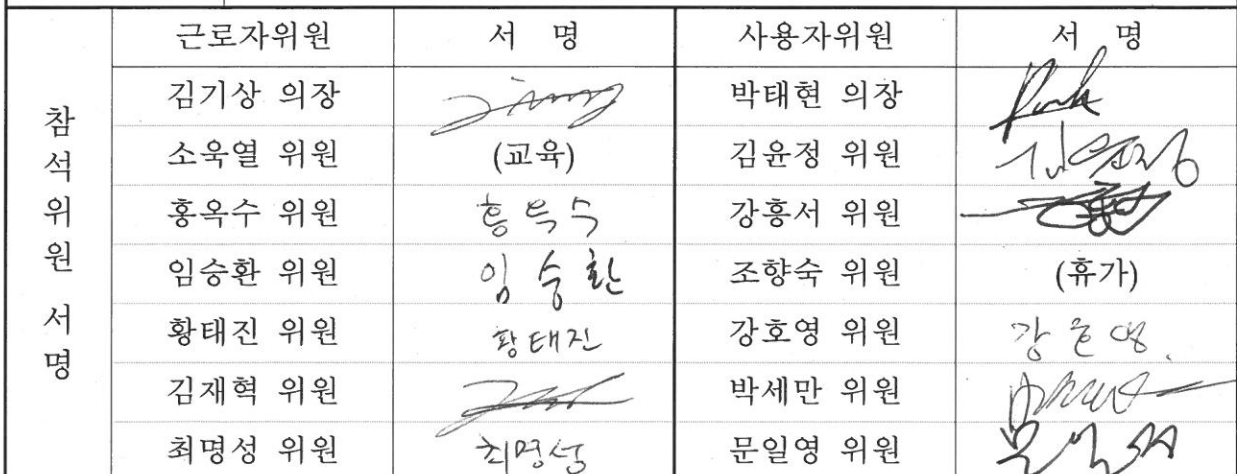 참석위원 서명
근로자위원 서 명 사용자위원 서 명
김기상 의장 박태현 의장
소욱열 위원 (교육) 김윤정 위원 김윤정
홍옥수 위원 홍옥수 강흥서 위원
임승환 위원 임승환 조향숙 위원 (휴가)
황태진 위원 황태진 강호영 위원 강호영
김재혁 위원 박세만 위원
최명성 위원 최명성 문일영 위원